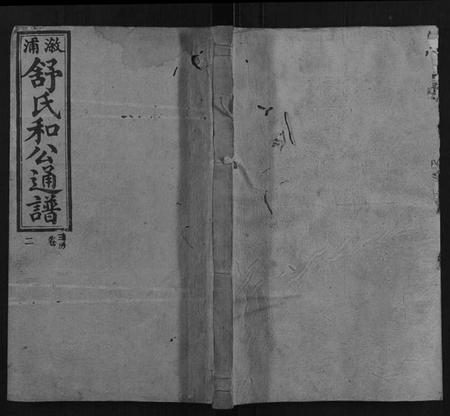 漵浦
舒氏和公通譜
卷
二